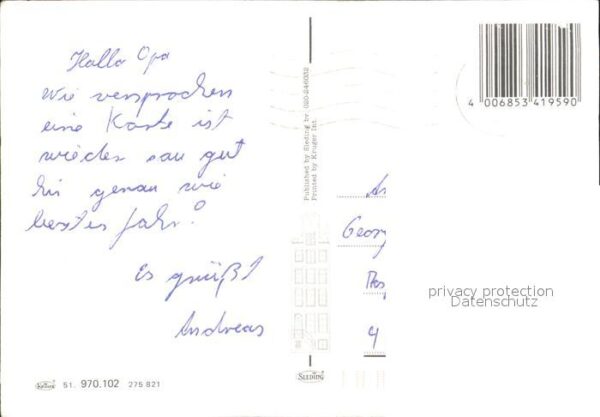 Hallo Opa
Wie versprochen
eine Karte ist
wieder sau gut
hir genau wie
letztes Jahr!
Es grüßt
Andreas
Published by Sleding bv. 020-246032
Printed by Kruger Int.
4 006853 419590
An
Georg
4
privacy protection
Datenschutz
51. 970.102 275 821
SLEDING